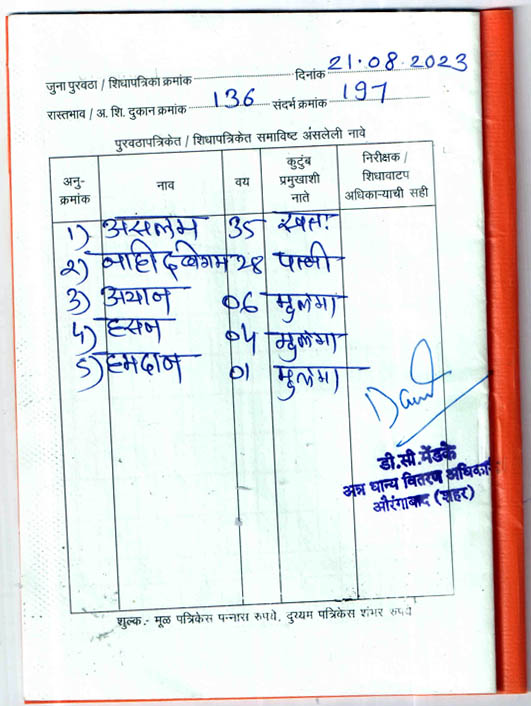 जुना पुरवठा / शिधापत्रिका क्रमांक दिनांक 21.08.2023
रास्तभाव / अ. शि. दुकान क्रमांक 136 संदर्भ क्रमांक 197
पुरवठापत्रिकेत / शिधापत्रिकेत समाविष्ट असलेली नावे
अनु-क्रमांक नाव वय कुटुंब प्रमुखाशी नाते निरीक्षक / शिधावाटप अधिकाऱ्याची सही
1) असलम 35 स्वतः
2) नाहीद बेगम 28 पत्नी
3) अयान 06 मुलगा
4) हसन 04 मुलगा
5) हमदान 01 मुलगा
डी.सी.मेंडके
अन्न धान्य वितरण अधिकारी
औरंगाबाद (शहर)
शुल्क.- मूळ पत्रिकेस पन्नास रुपये, दुय्यम पत्रिकेस शंभर रुपये